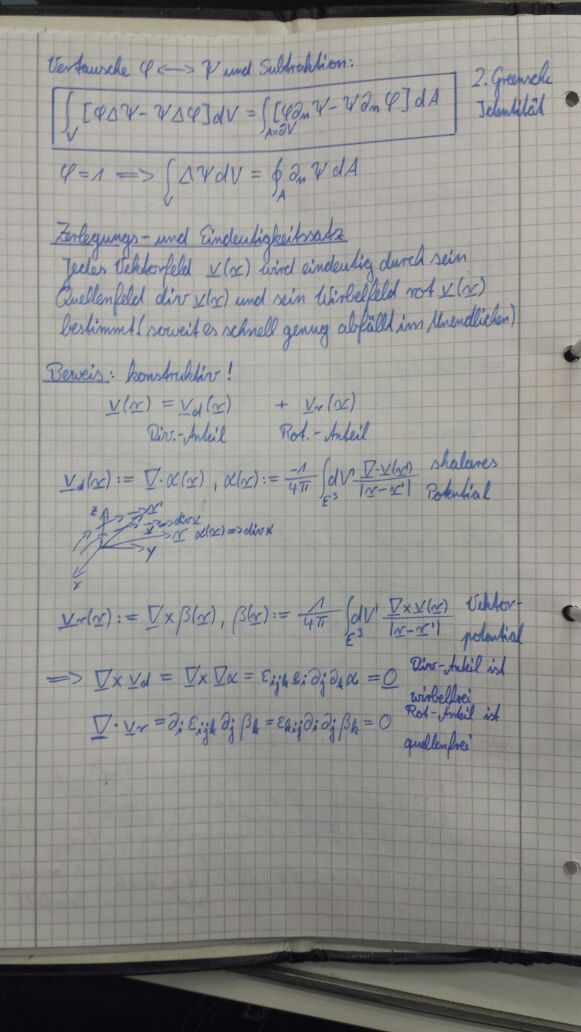 Vertausche φ ⟷ Ψ und Subtraktion:
∫_V [φΔΨ − ΨΔφ] dV = ∫_{A=∂V} [φ∂ₙΨ − Ψ∂ₙφ] dA
2. Greensche
Identität
φ = 1 ⟹ ∫_V ΔΨ dV = ∮_A ∂ₙΨ dA
Zerlegungs- und Eindeutigkeitssatz
Jedes Vektorfeld v(x) wird eindeutig durch sein
Quellenfeld div v(x) und sein Wirbelfeld rot v(x)
bestimmt (soweit es schnell genug abfällt im Unendlichen)
Beweis: konstruktiv!
v(x) = v_d(x) + v_r(x)
Div.-Anteil Rot.-Anteil
v_d(x) := ∇·α(x), α(x) := −1/4π ∫_{E³} dV' ∇·v(x')/|x−x'| skalares
Potential
z x'
v ⇒ div x
x α(x) ⇒ div x
y
x
v_r(x) := ∇×β(x), β(x) := 1/4π ∫_{E³} dV' ∇×v(x)/|x−x'| Vektor-
potential
⟹ ∇×v_d = ∇×∇α = ε_{ijk} e_i ∂_j ∂_k α = 0 Div-Anteil ist
wirbelfrei
∇·v_r = ∂_i ε_{ijk} ∂_j β_k = ε_{kij} ∂_i ∂_j β_k = 0 Rot-Anteil ist
quellenfrei